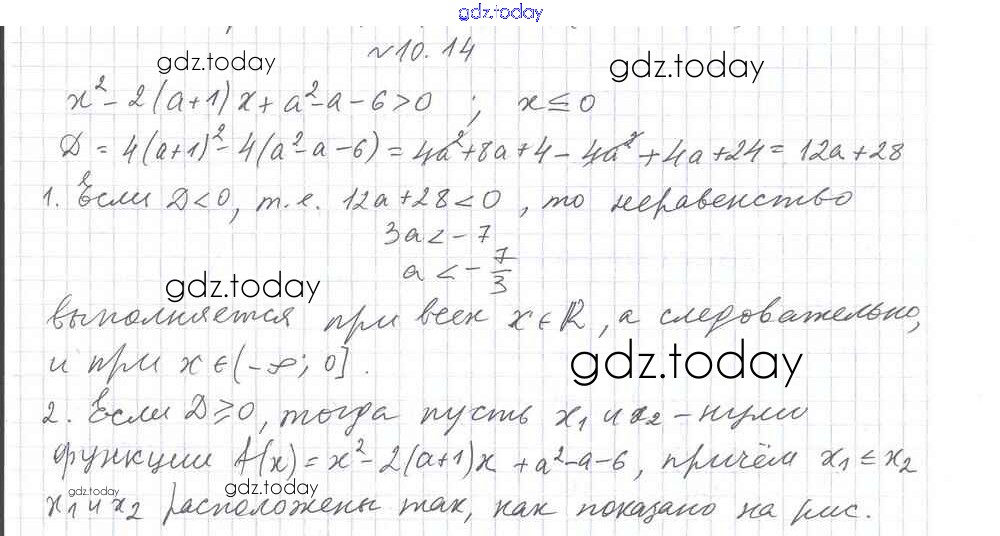 gdz.today
№10.14
gdz.today gdz.today
x² - 2(a+1)x + a² - a - 6 > 0 ; x ≤ 0
D = 4(a+1)² - 4(a² - a - 6) = 4a² + 8a + 4 - 4a² + 4a + 24 = 12a + 28
1. Если D < 0, т.е. 12a + 28 < 0, то неравенство
3a < -7
a < -7/3
gdz.today
выполняется при всех x ∈ R, а следовательно,
и при x ∈ (-∞; 0].
gdz.today
2. Если D ≥ 0, тогда пусть x₁ и x₂ - нули
функции f(x) = x² - 2(a+1)x + a² - a - 6, причём x₁ ≤ x₂
gdz.today gdz.today
x₁ и x₂ расположены так, как показано на рис.